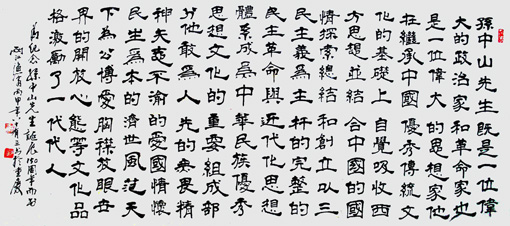 孫中山先生既是一位偉
大的政治家和革命家也
是一位偉大的思想家他
在繼承中國優秀傳統文
化的基礎上自覺吸收西
方思想並結合中國的國
情探索總結和創立以三
民主義為主桿的完整的
民主革命與近代化思想
體系成為中華民族優秀
思想文化的重要組成部
分他敢為人先的無畏精
神矢志不渝的愛國情懷
民生為本的濟世風范天
下為公博愛胸襟及眼世
界的開放心態等文化品
格激勵了一代代人
為紀念孫中山先生誕辰150周年而書
兩江漁翁丙申年月於重慶